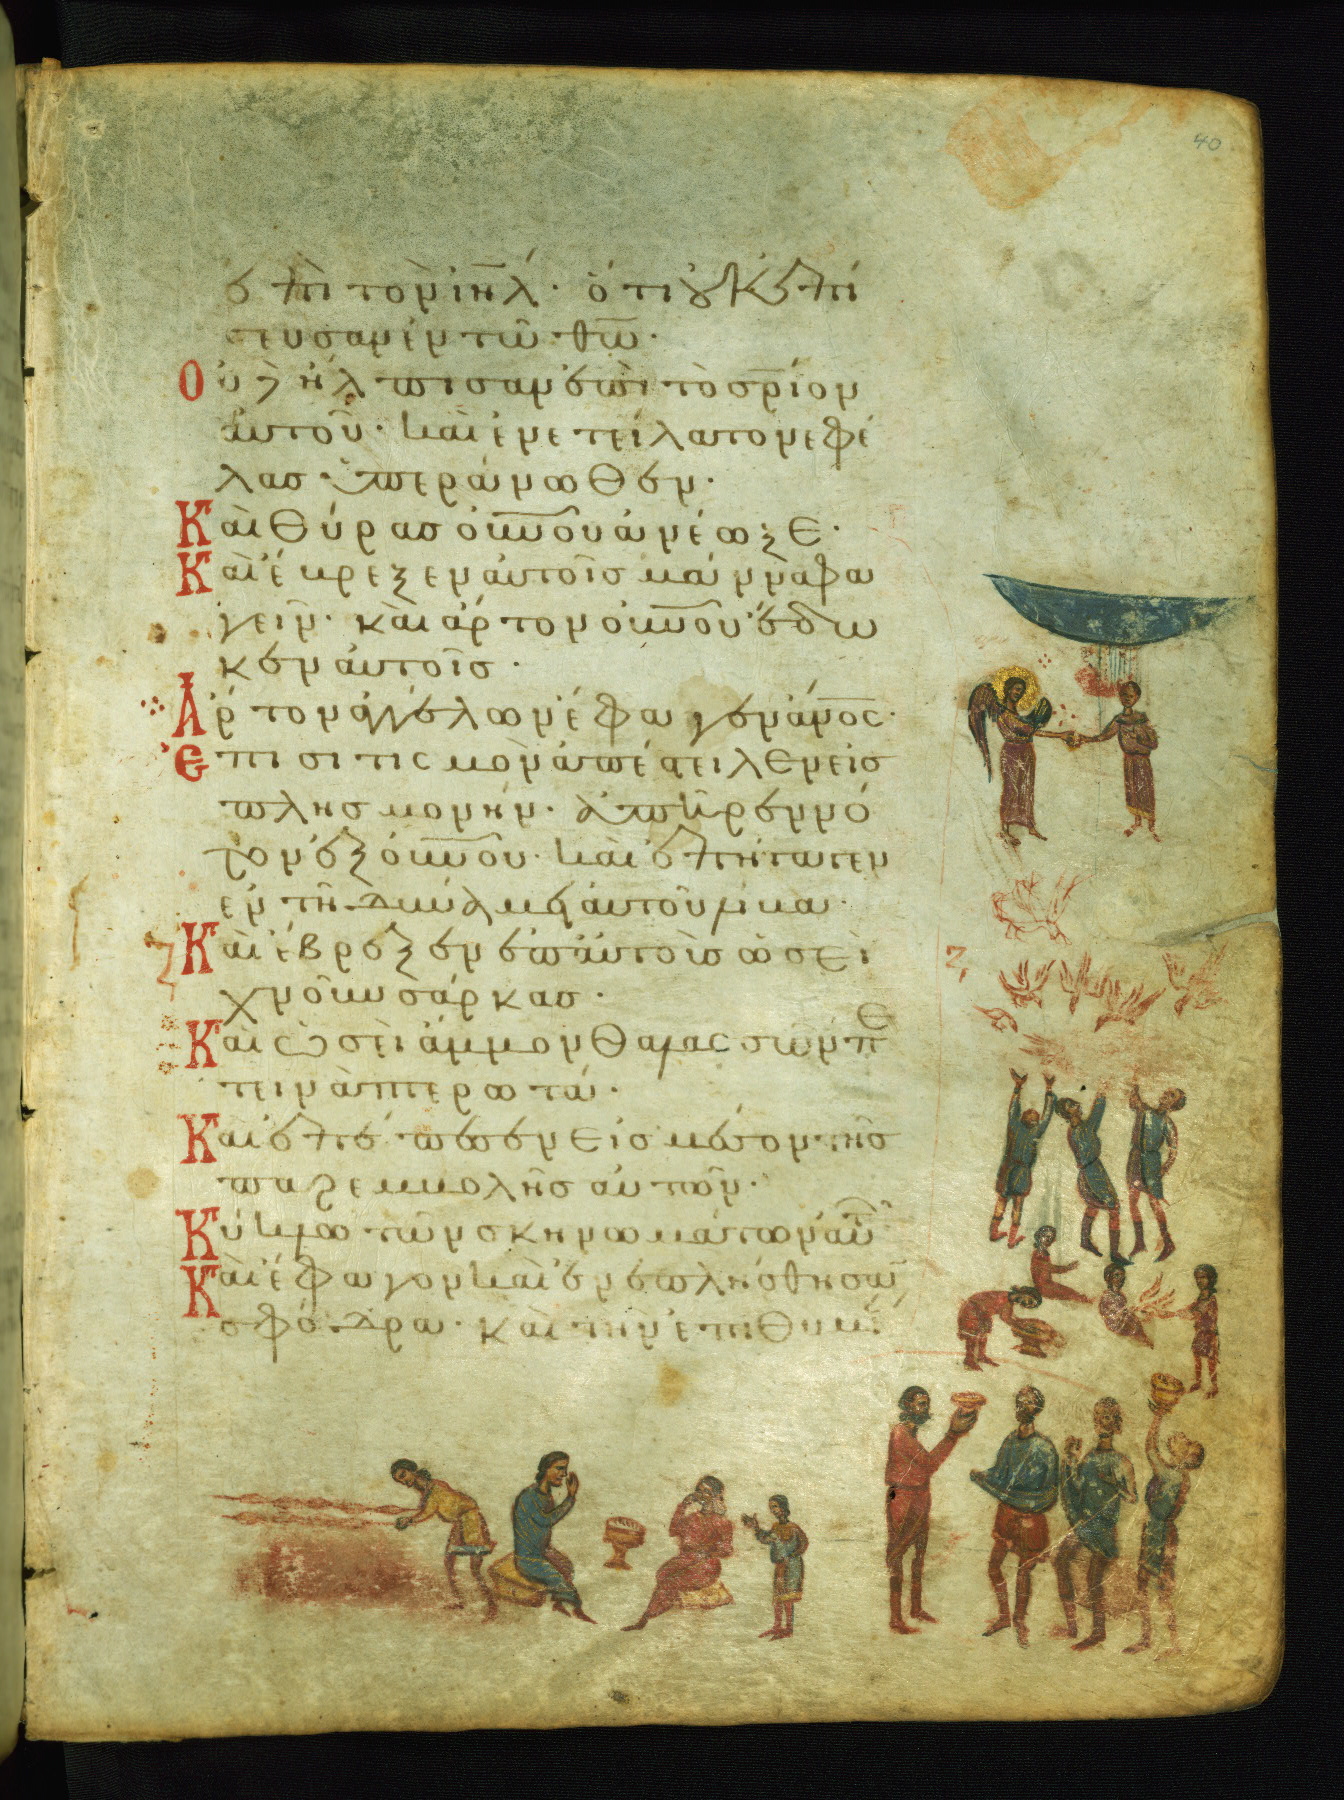 40
ἐπὶ τὸν ἰηλ· ὅτι οὐκ ἐπί
στευσαν ἐν τῶ θω·
Οὐδ' ἤλπισαν ἐπὶ τὸ σριον
αὐτοῦ· καὶ ἐνετείλατο νεφέ
λαις ὑπεράνωθεν·
Καὶ θύρας οὐνοῦ ἀνέωξε·
Καὶ ἔβρεξεν αὐτοῖς μάννα φα
γεῖν· καὶ ἄρτον οὐνοῦ ἔδω
κεν αὐτοῖς·
Ἄρτον ἀγγέλων ἔφαγεν ἀνος·
Ἐπισιτισμὸν ἀπέστειλεν εἰς
πλησμονήν· ἀπῆρεν νό
τον ἐξ οὐνοῦ· καὶ ἐπήγαγεν
ἐν τῆ δυνάμει αὐτοῦ λίβα·
Καὶ ἔβρεξεν ἐπ' αὐτοὺς ὡσεὶ
χνοῦν σάρκας·
Καὶ ὡσεὶ ἄμμον θαλασσῶν πε
τεινὰ πτερωτά·
Καὶ ἐπέπεσεν εἰς μέσον τῆς
παρεμβολῆς αὐτῶν·
Κύκλω τῶν σκηνωμάτων αὐτ
Καὶ ἔφαγον καὶ ἐνεπλήσθησαν
σφόδρα· καὶ τὴν ἐπιθυμί